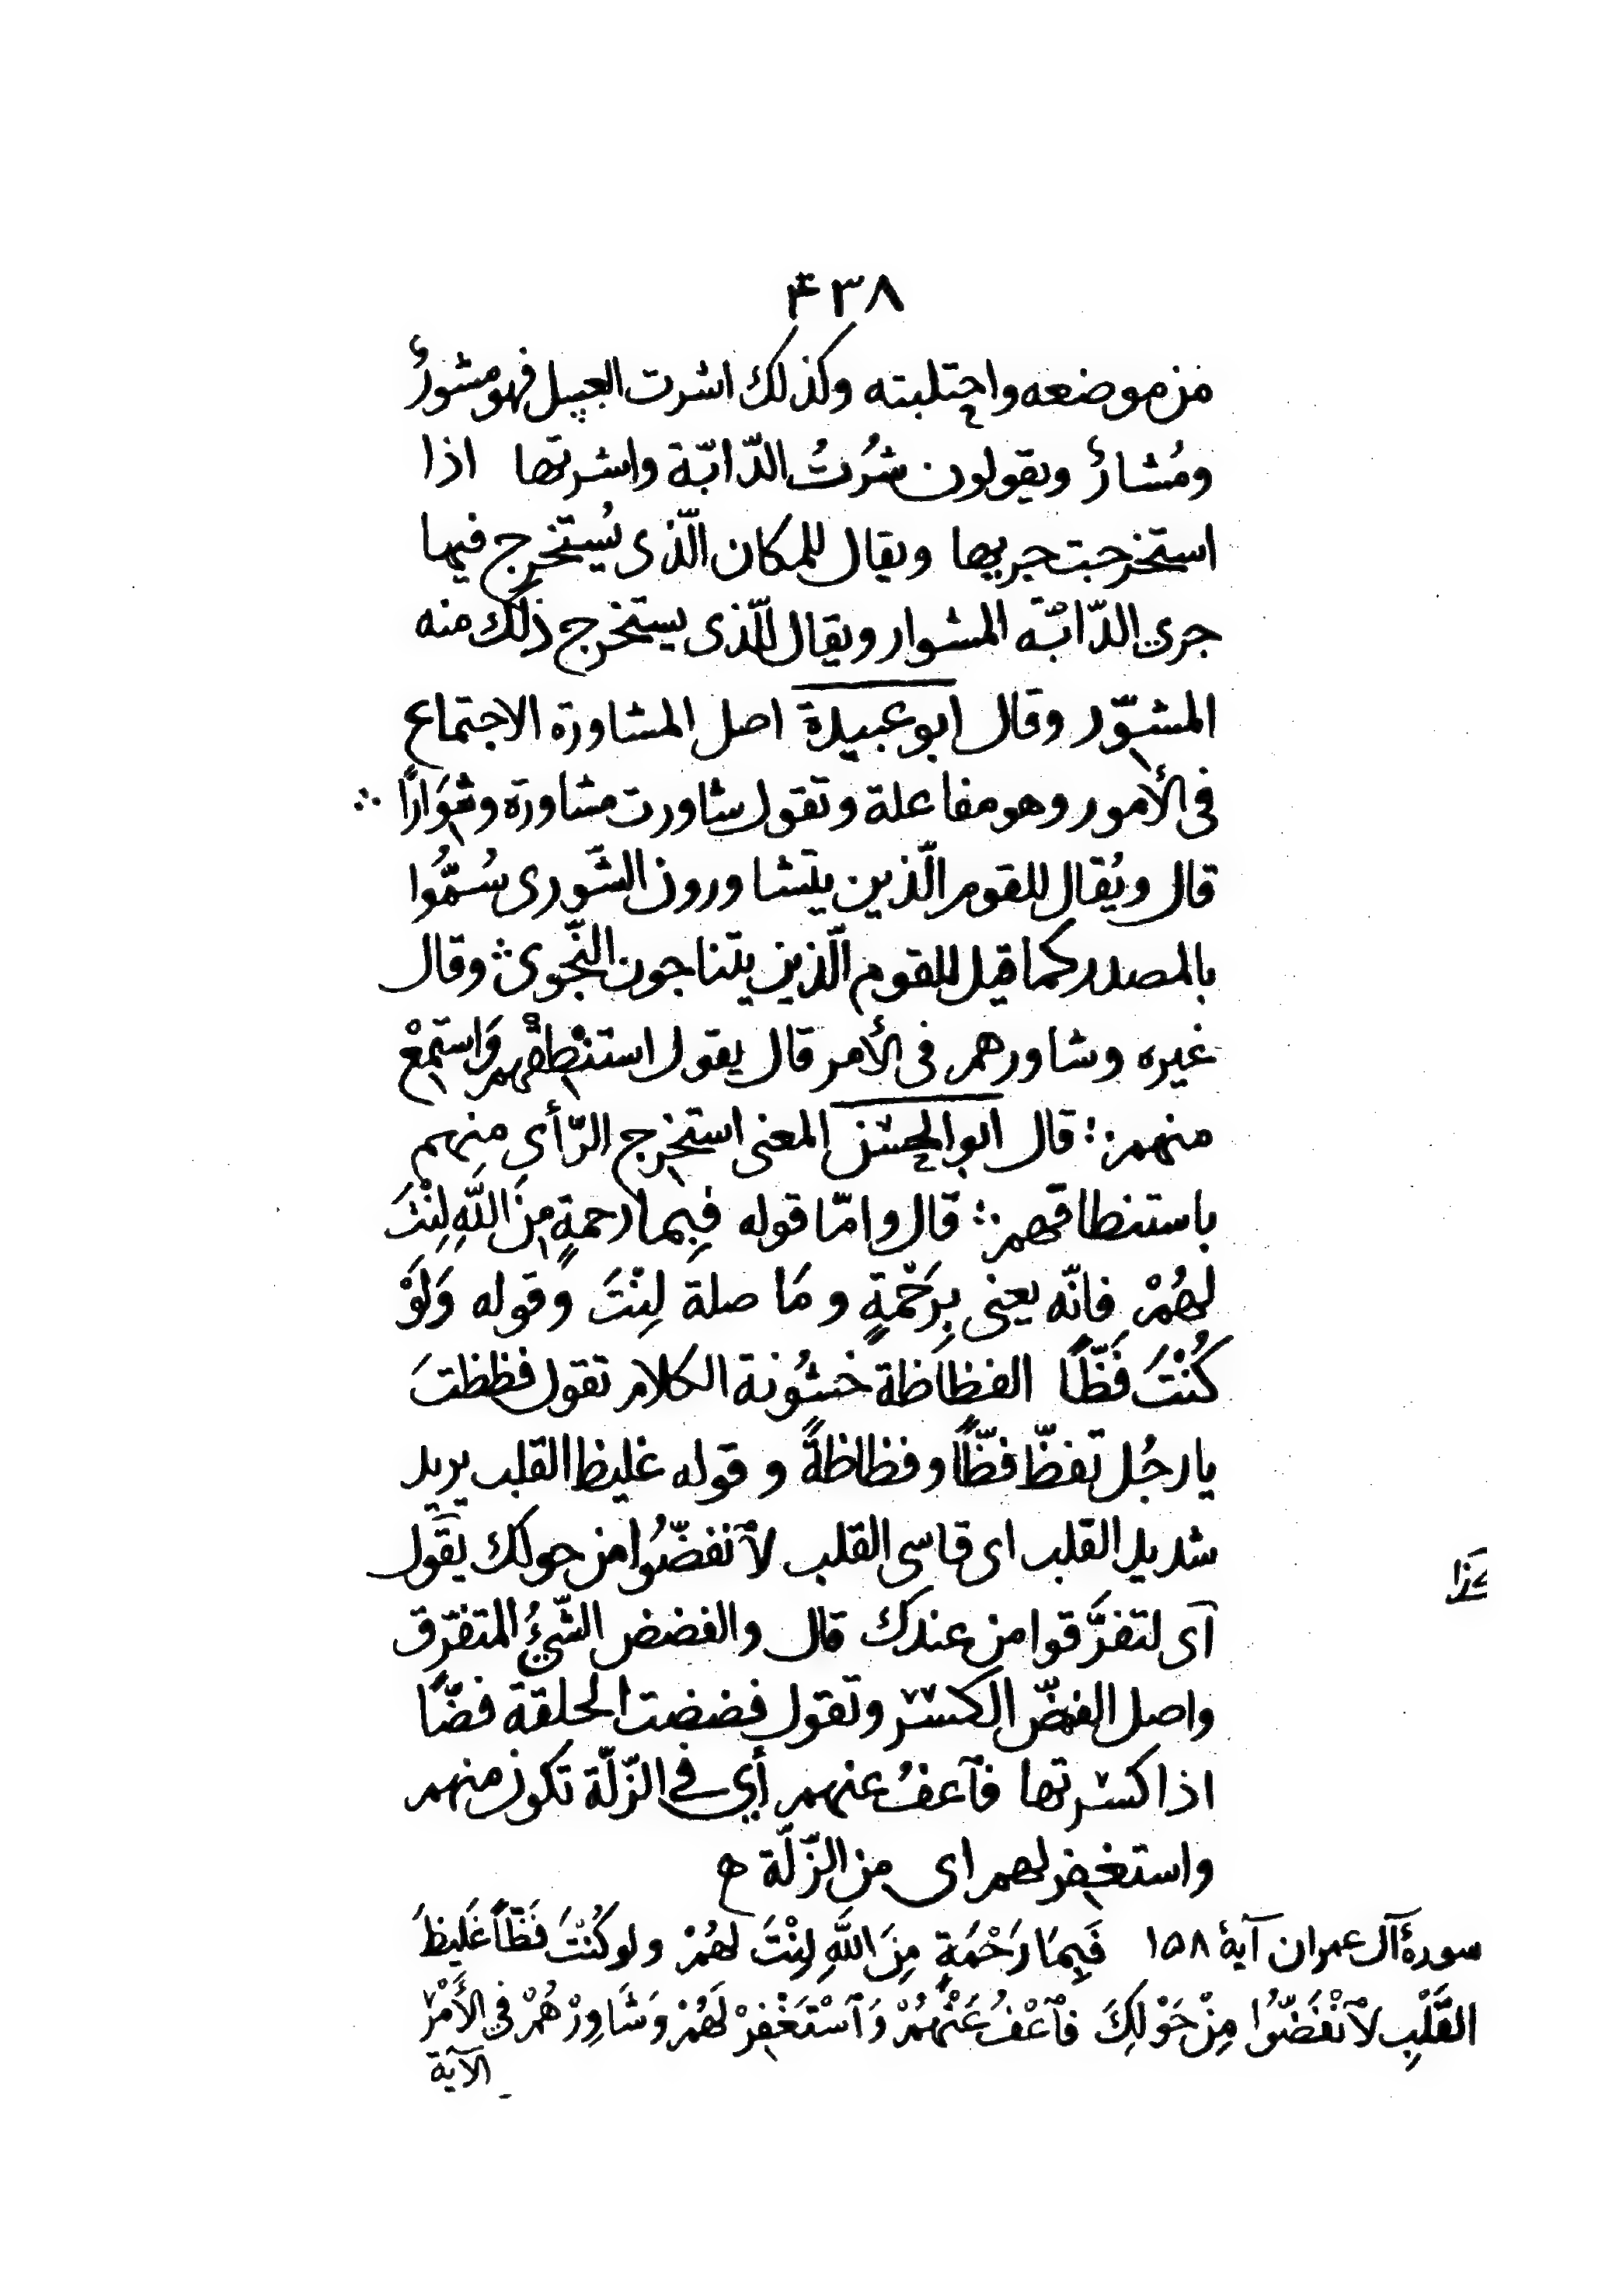 ۴۳۸
من موضعه واحتلبته وكذلك اشرت العسل فهو مشورٌ
ومُشارٌ ويقولون شُرتُ الدّابّة واشرتها اذا
استخرجت جريها ويقال للمكان الّذى يُستخرج فيها
جري الدّابّة المشوار ويقال للّذى يستخرج ذلك منه
المشوّر وقال ابو عبيدة اصل المشاورة الاجتماع
فى الأمور وهو مفاعلة وتقول شاورت مشاورة وشِوَارًا ∴
قال ويُقال للقوم الّذين يتشاورون الشّورى سُمُّوا
بالمصدر كما قيل للقوم الّذين يتناجون النّجوى ∴ وقال
غيره وشاورهم فى الأمر قال يقول استنْطِقْهم وَاستمِعْ
منهم ∴ قال ابو الحسن المعنى استخرج الرّأي منهم
باستنطاقهم ∴ قال وامّا قوله فبِما رحمةٍ مِنَ اللَّهِ لِنْتَ
لهُمْ فانّه يعنى بِرَحْمةٍ و مَا صلة لِنْتَ وَقوله وَلَوْ
كُنْتَ فَظّاً الفظاظة خشُونة الكلام تقول فظظتَ
يا رجُل تفظّ فظّاً و فظاظةً و قوله غليظ القلب يريد
شديد القلب اى قاسى القلب لآنفضّوُا من حولك يقول
آى لتفرَّقوا من عندك قال والفضض الشّيءُ المتفرّق
واصل الفضّ الكسر وتقول فضضت الحلقة فضًّا
اذا كسرتها فآعفُ عنهم أي في الزّلّة تكون منهم
واستغفر لهم اى من الزّلّة ه
سورۀ آل عمران آيۀ ١٥٨ فَبِمَا رَحْمَةٍ مِنَ اللَّهِ لِنْتَ لهُمْ ولو كُنْتَ فَظّاً غَليظَ
القَلْبِ لآنْفَضّوُا مِنْ حَوْلِكَ فآعْفُ عَنْهُمْ وَآسْتَغْفِرْ لَهُمْ وَشَاوِرْهُمْ في الأَمْرْ
الآية